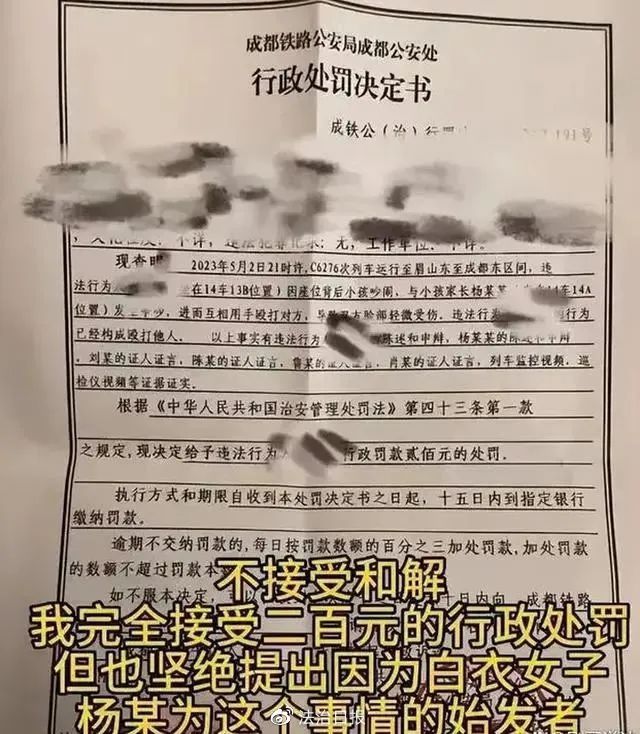 成都铁路公安局成都公安处
行政处罚决定书
成铁公(治)行罚
191号
无,工作单位
现查明
2023年5月2日21时许,C6276次列车运行至眉山东至成都东区间,违
法行为
在14车13B位置)因座位背后小孩吵闹,与小孩家长杨某某
14车14A
位置)发生
进而互相用手殴打对方,导致双方脸部轻微受伤.违法行为
的行为
已经构成殴打他人.
以上事实有违法行为
陈述和申辩,杨某某的陈述和申辩,
刘某的证人证言,陈某的证人证言,鲁某的证人证言,肖某的证人证言,列车监控视频,巡
检仪视频等证据证实.
根据《中华人民共和国治安管理处罚法》第四十三条第一款
之规定,现决定给予违法行为人
行政罚款贰佰元的处罚.
执行方式和期限自收到本处罚决定书之日起,十五日内到指定银行
缴纳罚款.
逾期不交纳罚款的,每日按罚款数额的百分之三加处罚款,加处罚款
的数额不超过罚款本
如不服本决定,可以
十日内向
成都铁路
不接受和解
我完全接受二百元的行政处罚
但也坚绝提出因为白衣女子
杨某为这个事情的始发者
@法治日报